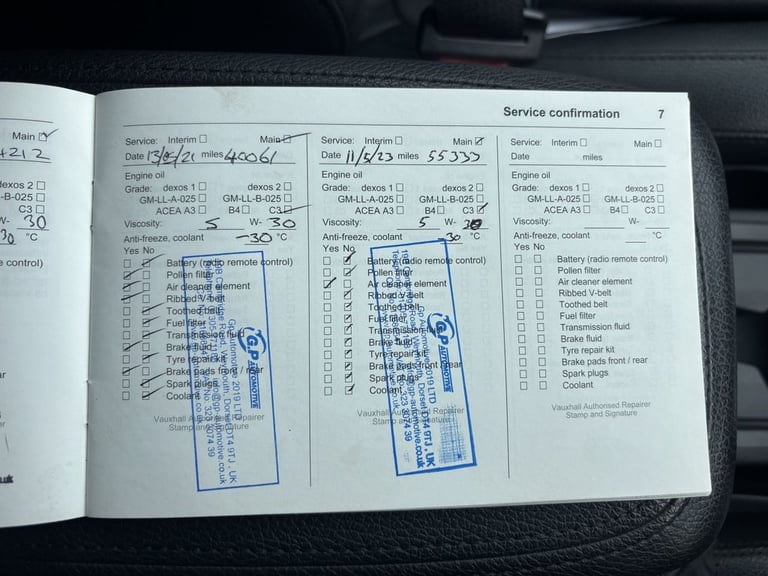 Service confirmation 7
Main
4212
dexos 2
-B-025
C3
W- 30
30 °C
e control)
Service: Interim Main
Date 13/ /21 miles 40061
Engine oil
Grade: dexos 1 dexos 2
GM-LL-A-025 GM-LL-B-025
ACEA A3 B4 C3
Viscosity: 5 W- 30
Anti-freeze, coolant -30 °C
Yes No
Battery (radio remote control)
Pollen filter
Air cleaner element
Ribbed V-belt
Toothed belt
Fuel filter
Transmission fluid
Brake fluid
Tyre repair kit
Brake pads front / rear
Spark plugs
Coolant
Vauxhall Authorised Repairer
Stamp and Signature
G.P AUTOMOTIVE
Gp Automotive 2019 LTD
Dorset DT4 9TJ, UK
Service: Interim Main
Date 11/5/23 miles 55333
Engine oil
Grade: dexos 1 dexos 2
GM-LL-A-025 GM-LL-B-025
ACEA A3 B4 C3
Viscosity: 5 W- 30
Anti-freeze, coolant -30 °C
Yes No
Battery (radio remote control)
Pollen filter
Air cleaner element
Ribbed V-belt
Toothed belt
Fuel filter
Transmission fluid
Brake fluid
Tyre repair kit
Brake pads front / rear
Spark plugs
Coolant
Vauxhall Authorised Repairer
Stamp and Signature
G.P AUTOMOTIVE
Gp Automotive 2019 LTD
Dorset DT4 9TJ, UK
Service: Interim Main
Date miles
Engine oil
Grade: dexos 1 dexos 2
GM-LL-A-025 GM-LL-B-025
ACEA A3 B4 C3
Viscosity: W-
Anti-freeze, coolant °C
Yes No
Battery (radio remote control)
Pollen filter
Air cleaner element
Ribbed V-belt
Toothed belt
Fuel filter
Transmission fluid
Brake fluid
Tyre repair kit
Brake pads front / rear
Spark plugs
Coolant
Vauxhall Authorised Repairer
Stamp and Signature